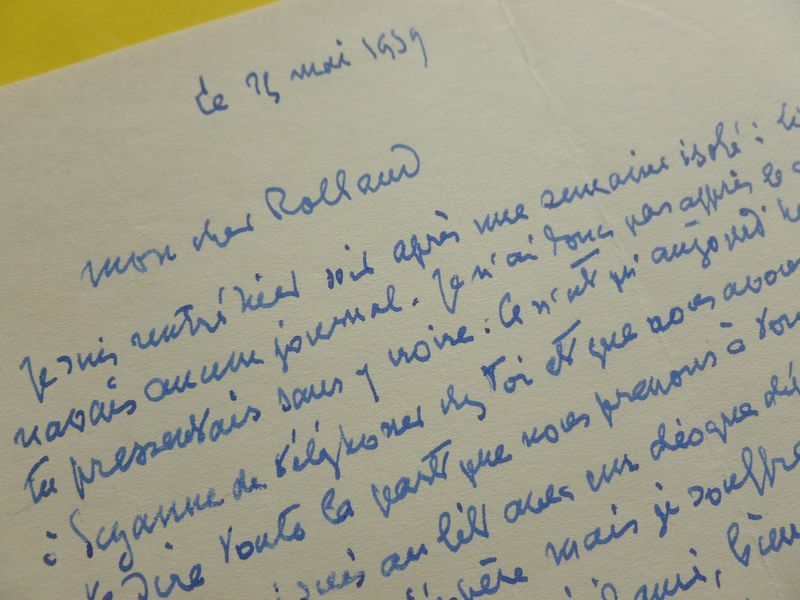 Le 25 mai 1959
mon cher Rolland
Je suis rentré hier soir après une semaine isolé :
n'avais aucun journal. Je n'ai donc pas appris le
tu pressentais sans y croire : ce n'est qu'aujourd'h
à Suzanne de téléphoner chez toi et que nous avons
te dire toute la part que nous prenons à
suis au lit avec une
mais je souffre
ami, bien